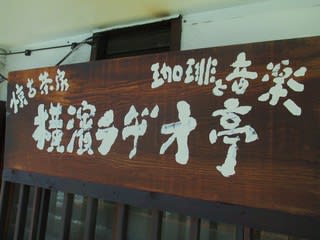 懐古茶房 珈琲と音楽
横濱ラヂオ亭